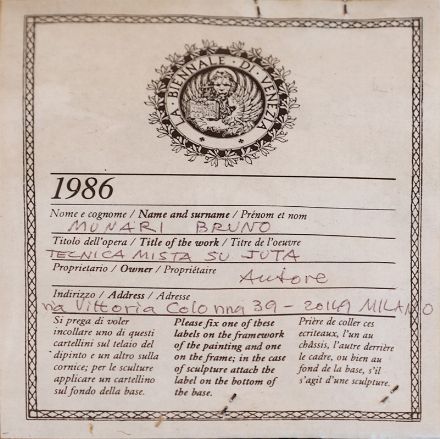 LA · BIENNALE · DI · VENEZIA
1986
Nome e cognome / Name and surname / Prénom et nom
MUNARI BRUNO
Titolo dell'opera / Title of the work / Titre de l'oeuvre
TECNICA MISTA SU JUTA
Proprietario / Owner / Propriétaire
Autore
Indirizzo / Address / Adresse
Via Vittoria Colonna 39 - 20149 MILANO
Si prega di voler
incollare uno di questi
cartellini sul telaio del
dipinto e un altro sulla
cornice; per le sculture
applicare un cartellino
sul fondo della base.
Please fix one of these
labels on the framework
of the painting and one
on the frame; in the case
of sculpture attach the
label on the bottom of
the base.
Prière de coller ces
écriteaux, l'un au
châssis, l'autre derrière
le cadre, ou bien au
fond de la base, s'il
s'agit d'une sculpture.